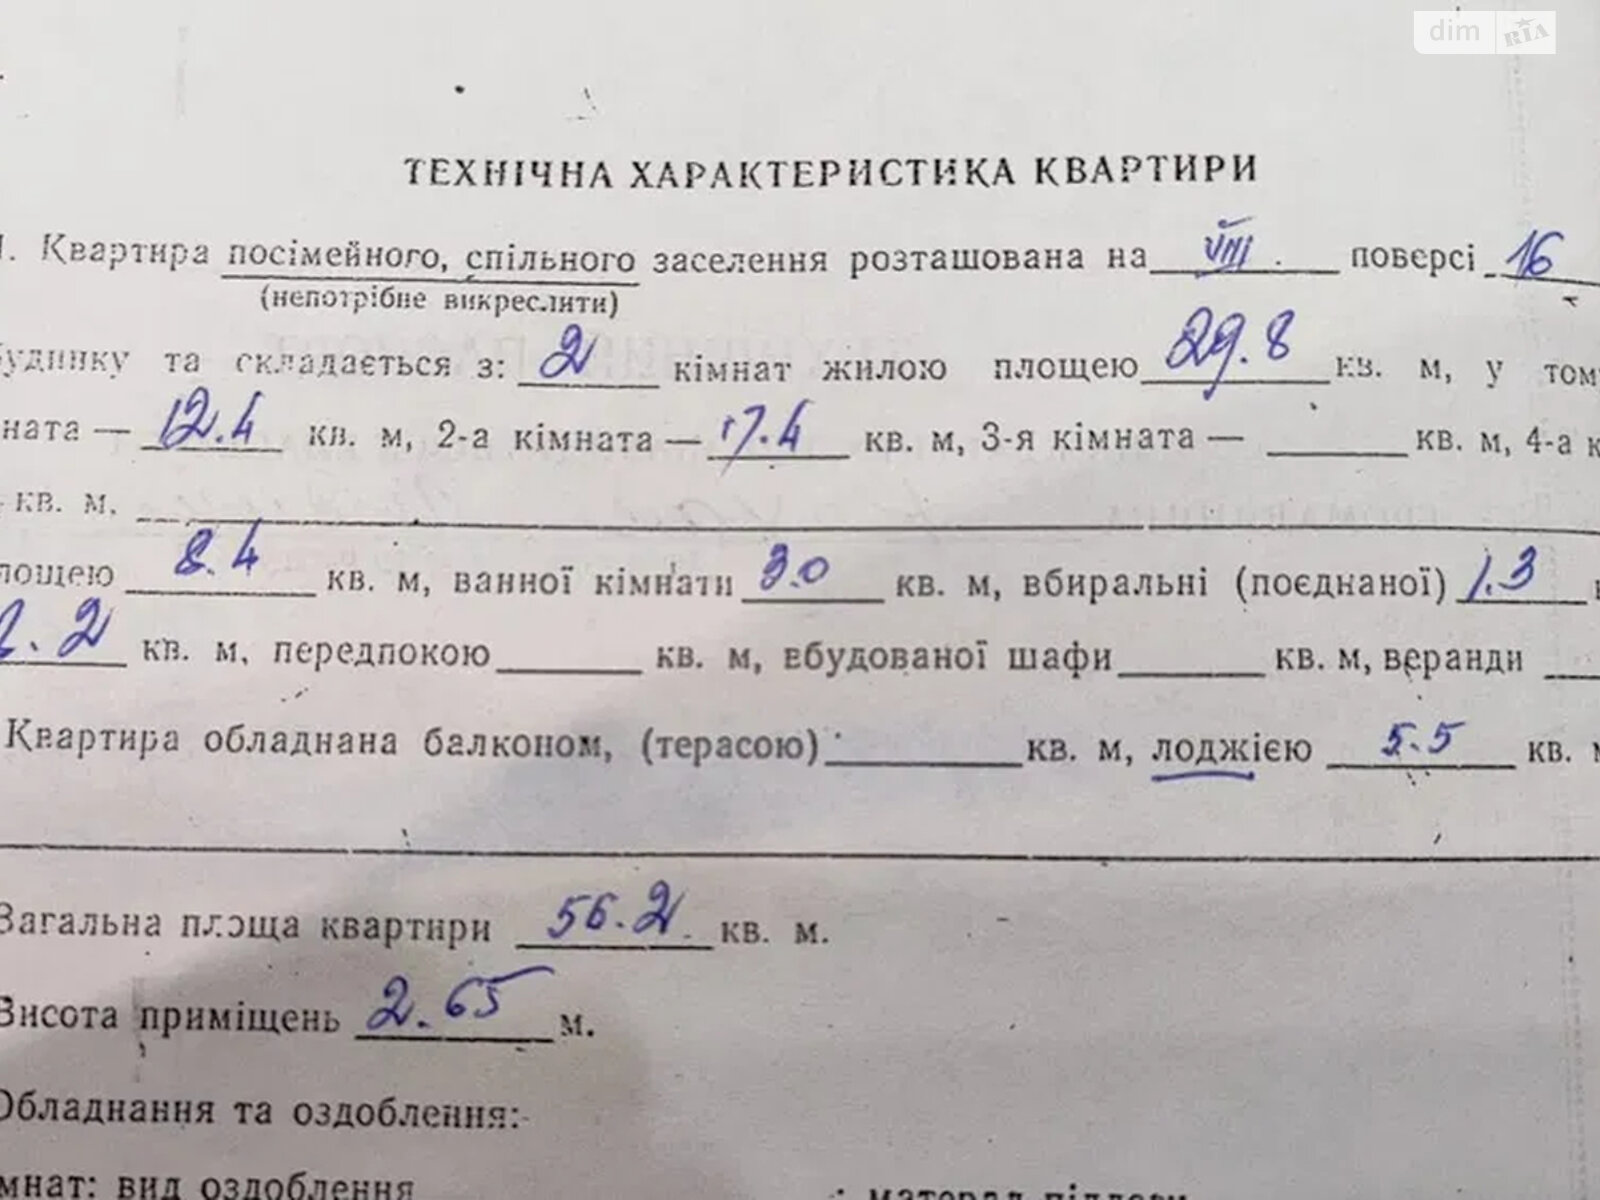 dim RIA
ТЕХНІЧНА ХАРАКТЕРИСТИКА КВАРТИРИ
1. Квартира посімейного, спільного заселення розташована на VIII поверсі 16
(непотрібне викреслити)
будинку та складається з: 2 кімнат жилою площею 29.8 кв. м, у тому
ната — 12.4 кв. м, 2-а кімната — 17.4 кв. м, 3-я кімната — кв. м, 4-а к
кв. м,
площею 8.4 кв. м, ванної кімнати 3.0 кв. м, вбиральні (поєднаної) 1.3
.2 кв. м, передпокою кв. м, вбудованої шафи кв. м, веранди
Квартира обладнана балконом, (терасою) кв. м, лоджією 5.5 кв. м
Загальна площа квартири 56.2 кв. м.
Висота приміщень 2.65 м.
Обладнання та оздоблення:
мнат: вид оздоблення